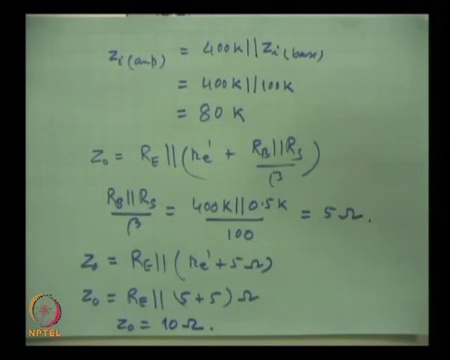 Zi(amp) = 400K || Zi(base)
= 400K || 100K
= 80 K
Zo = RE || (re' + RB || RS / β)
RB || RS / β = 400K || 0.5K / 100 = 5 Ω.
Zo = RE || (re' + 5 Ω)
Zo = RE || (5 + 5) Ω
Zo = 10 Ω.
NPTEL